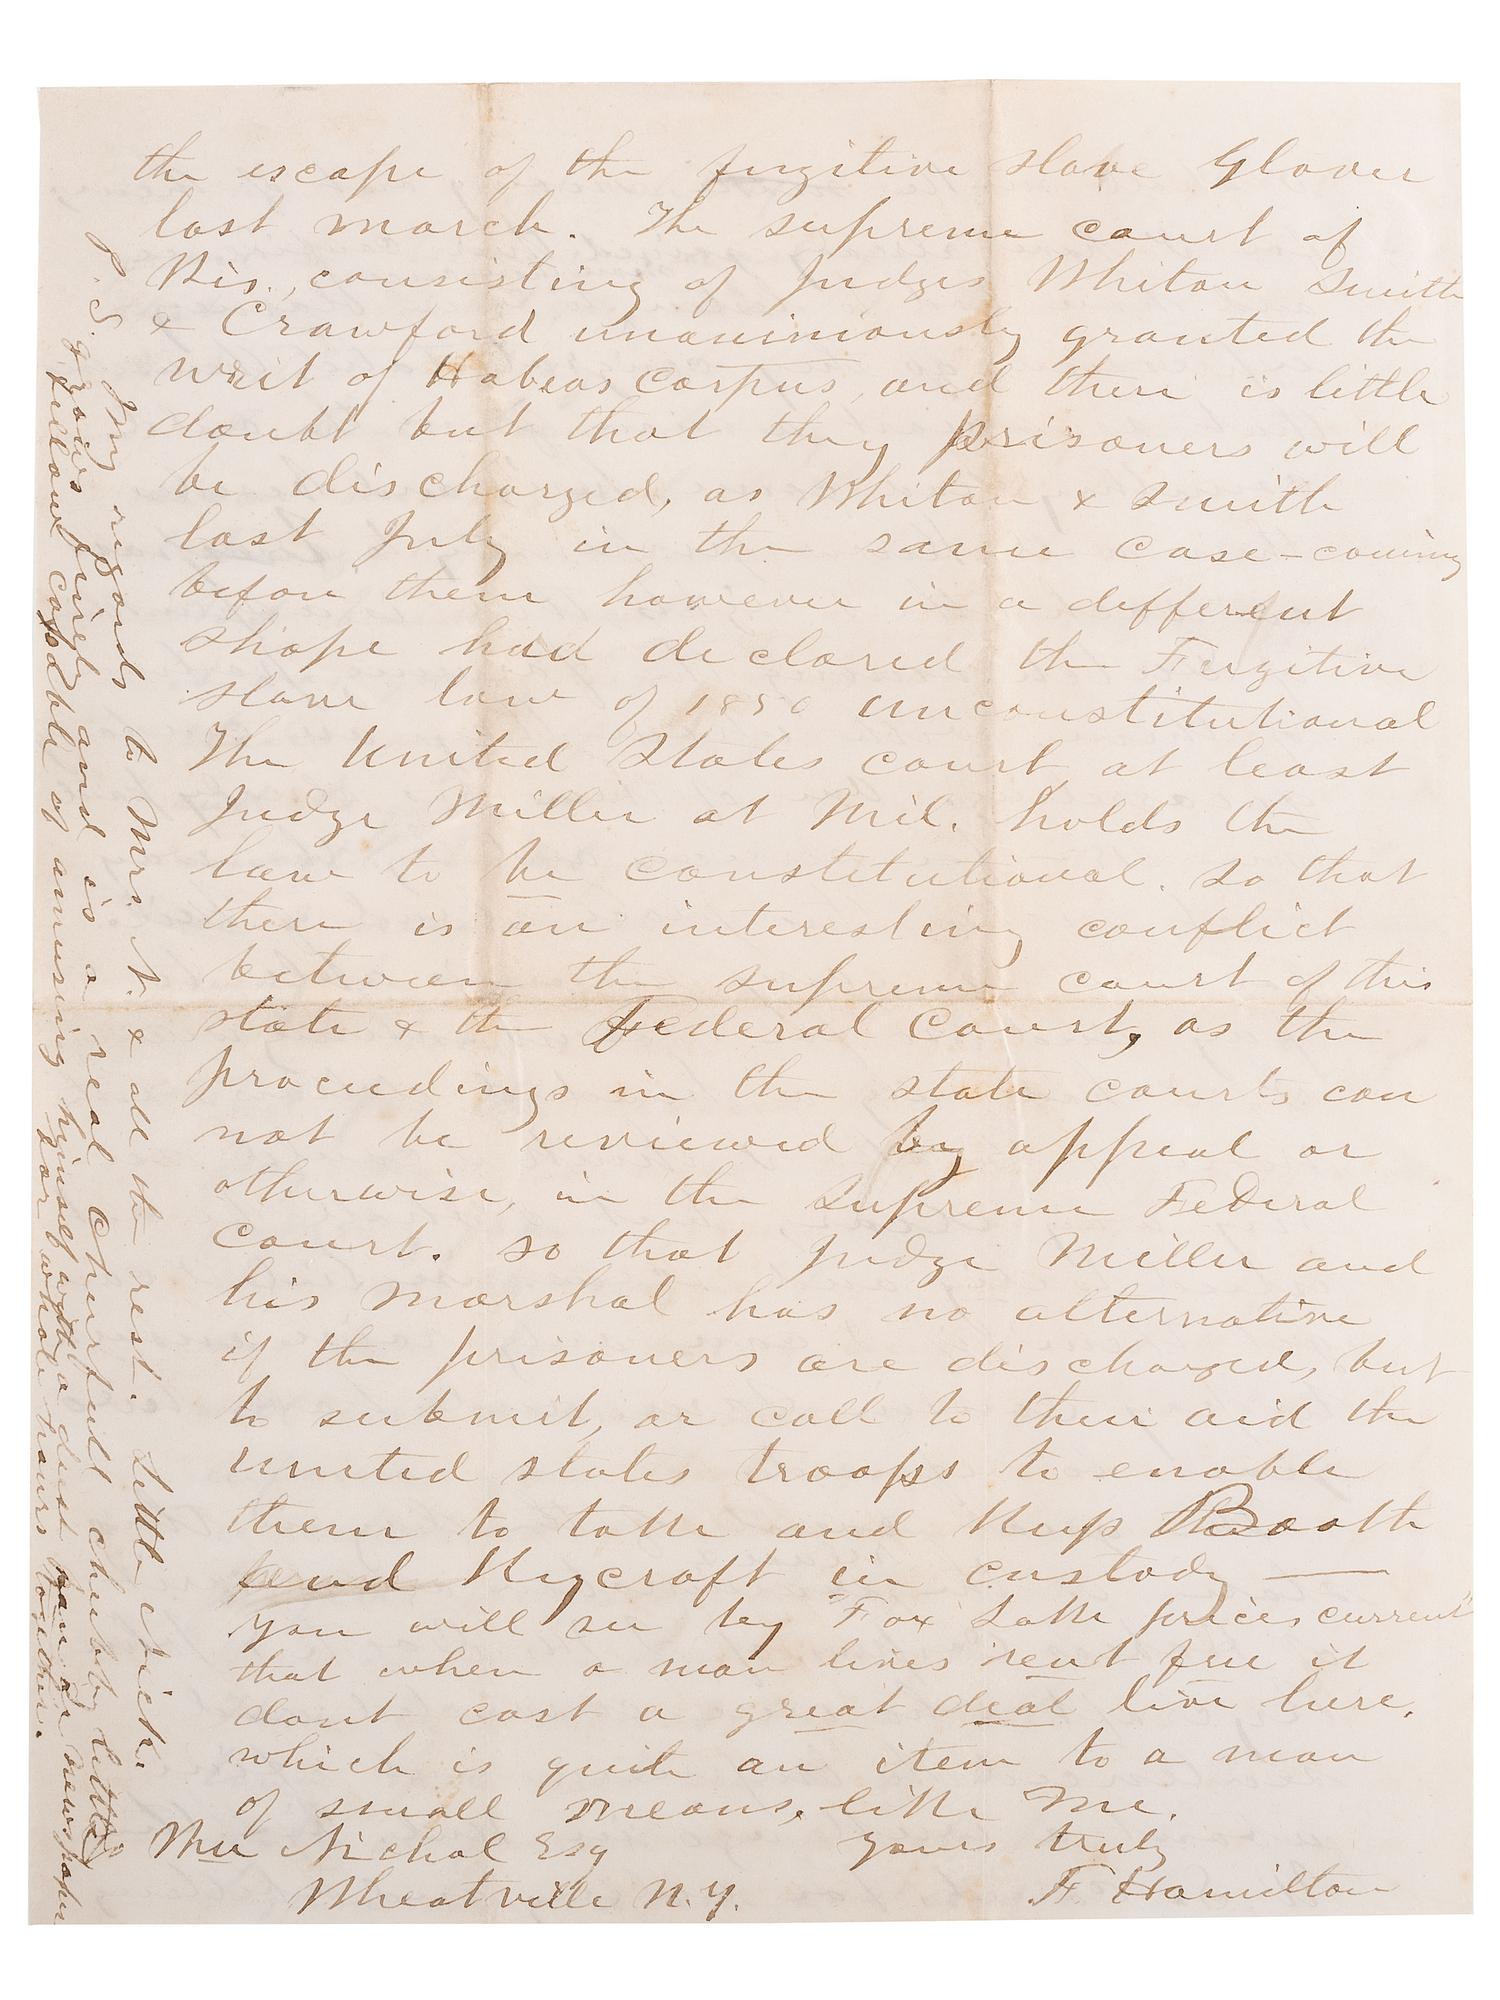 the escape of the fugitive slave Glover
last march. The supreme court of
Wis., consisting of Judges Whiton Smith
& Crawford unanimously granted the
writ of Habeas Corpus, and there is little
doubt but that they prisoners will
be discharged, as Whiton & Smith
last July in the same case - coming
before them however in a different
shape had declared the Fugitive
slave law of 1850 unconstitutional
The United States court, at least
Judge Miller at Mil. holds the
law to be constitutional. so that
there is an interesting conflict
between the supreme court of this
state & the Federal Court, as the
proceedings in the state courts can
not be reviewed by appeal or
otherwise, in the Supreme Federal
Court. so that judge Miller and
his marshal has no alternative
if the prisoners are discharged, but
to submit, or call to their aid the
united states troops to enable
them to take and keep Booth
and Rycroft in custody —
you will see by "Fox Lake prices current"
that when a man lives rent free it
dont cost a great deal live here,
which is quite an item to a man
of small means, like me.
yours truly
F Hamilton
Wm Nichol Esq
Wheatville N.Y.
My regards to Mrs. N. & all the rest. Little Nick.
P.S. grows finely and is a real cheerful chubby little
fellow capable of amusing himself with a dust pan or newspaper
for whole hours together.